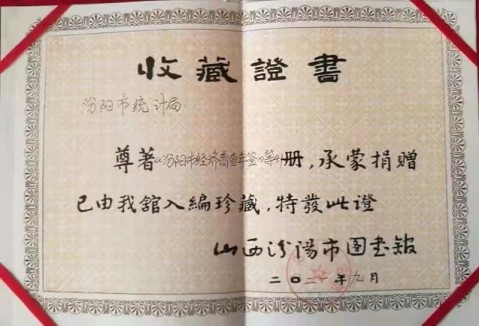 收藏證書
汾阳市统计局
尊著《汾阳市经济普查年鉴》等册，承蒙捐贈
已由我舘入編珍藏，特发此證
山西汾陽市图书舘
二〇二 年九月